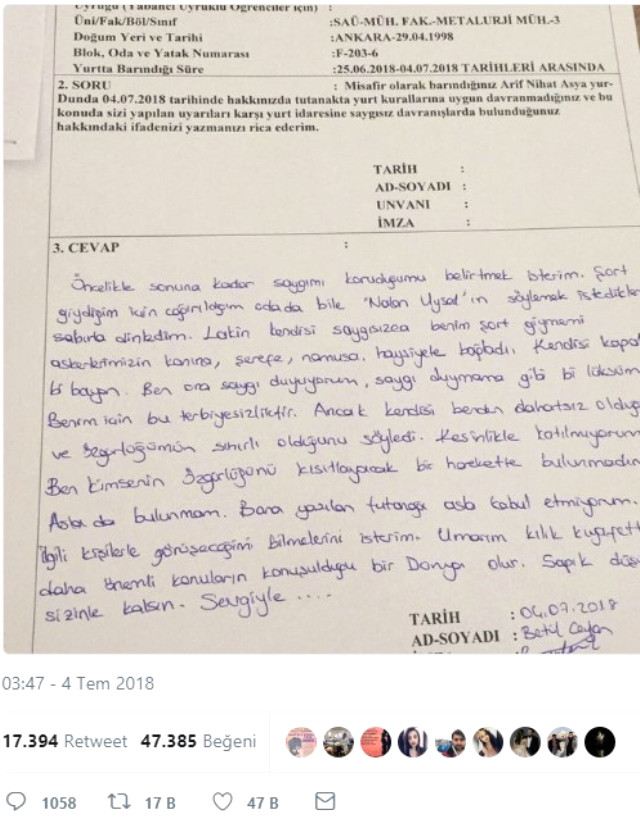 Uyruğu (Yabancı Uyruklu Öğrenciler için) :
Üni/Fak/Böl/Sınıf :SAÜ-MÜH. FAK.-METALURJİ MÜH.-3
Doğum Yeri ve Tarihi :ANKARA-29.04.1998
Blok, Oda ve Yatak Numarası :F-203-6
Yurtta Barındığı Süre :25.06.2018-04.07.2018 TARİHLERİ ARASINDA
2. SORU : Misafir olarak barındığınız Arif Nihat Asya yur-
Dunda 04.07.2018 tarihinde hakkınızda tutanakta yurt kurallarına uygun davranmadığınız ve bu
konuda sizi yapılan uyarıları karşı yurt idaresine saygısız davranışlarda bulunduğunuz
hakkındaki ifadenizi yazmanızı rica ederim.
TARİH :
AD-SOYADI :
UNVANI :
İMZA :
3. CEVAP :
Öncelikle sonuna kadar saygımı koruduğumu belirtmek isterim. Şort
giydiğim için çağırıldığım odada bile "Nalan Uysal"ın söylemek istedikler
sabırla dinledim. Lakin kendisi saygısızca benim şort giymemi
askerlerimizin kanına, şerefe, namusa, haysiyete bağladı. Kendisi kapal
bi bayan. Ben ona saygı duyuyorum, saygı duymama gibi bi lüksüm
Benim için bu terbiyesizliktir. Ancak kendisi benden rahatsız olduğ
ve özgürlüğümün sınırlı olduğunu söyledi. Kesinlikle katılmıyorum
Ben kimsenin özgürlüğünü kısıtlayacak bir harekette bulunmadım
Asla da bulunmam. Bana yazılan tutanağı asla kabul etmiyorum.
İlgili kişilerle görüşeceğimi bilmelerini isterim. Umarım kılık kıyafett
daha önemli konuların konuşulduğu bir Dünya olur. Sapık düş
sizinle kalsın. Sevgiyle ....
TARİH : 04.07.2018
AD-SOYADI : Betül
03:47 - 4 Tem 2018
17.394 Retweet 47.385 Beğeni
1058 17 B 47 B